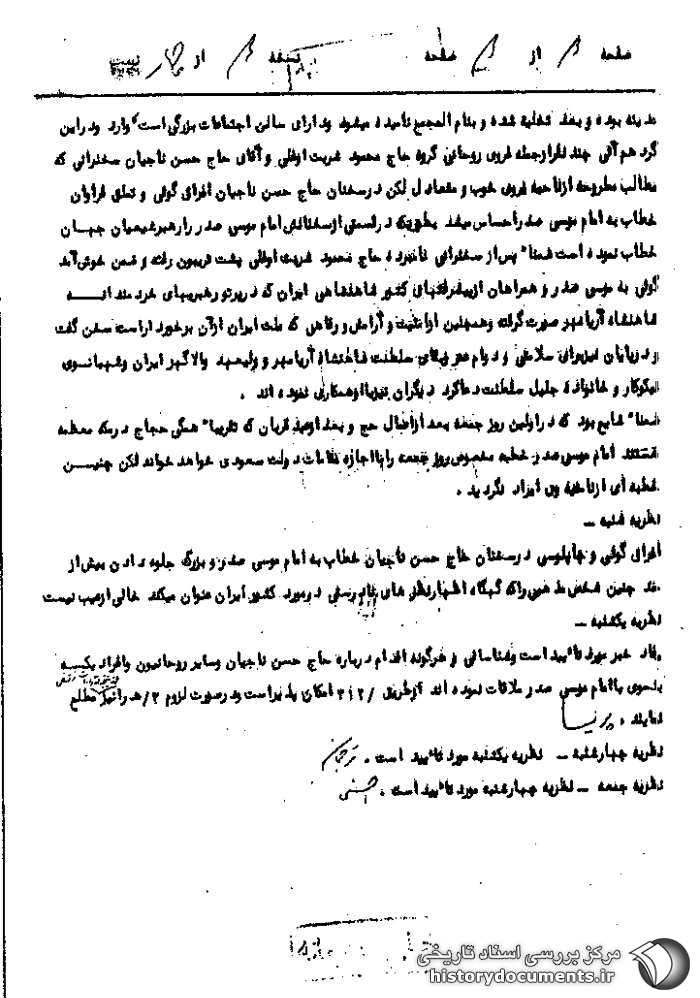 صفحه از صفحه نسخه از
مدینه بوده و بعد تخلیه شده و بنام المجمع نامیده میشود و دارای سالن اجتماعات بزرگی است وارد و در این
گرد هم آئی چند نفر از جمله فروی روحانی گروه حاج محمود شریت اوغلی و آقای حاج حسن ناجیان سخنرانی که
مطالب مطروحه از ناحیه فروی خوب و متعادل لکن در سخنان حاج حسن ناجیان اغراق گوئی و تملق فراوان
خطاب به امام موسی صدر احساس میشد بطوریکه در قسمتی از سخنانش امام موسی صدر را رهبر شیعیان جهان
خطاب نموده است ضمنا" پس از سخنرانی نامبرده حاج محمود شریت اوغلی پشت تریبون رفته و ضمن خوش آمد
گوئی به موسی صدر و همراهان از پیشرفتهای کشور شاهنشاهی ایران که در پرتو رهبریهای خردمندانه
شاهنشاه آریامهر صورت گرفته و همچنین از امنیت و آرامش و رفاهی که ملت ایران از آن برخوردار است سخن گفت
و در پایان نیز برای سلامتی و دوام عمر و بقای سلطنت شاهنشاه آریامهر و ولیعهد والاگهر ایران و شهبانوی
نیکوکار و خانواده جلیل سلطنت دعا کرد دیگران نیز با او همکاری نموده اند .
ضمنا" شایع بود که در اولین روز جمعه بعد از اعمال حج و بعد از عید قربان که تقریبا" همگی حجاج در مکه معظمه
هستند امام موسی صدر خطبه مخصوص روز جمعه را با اجازه مقامات دولت سعودی خواهد خواند لکن چنین
خطبه ای از ناحیه وی ایراد نگردید .
نظریه شنبه _
اغراق گوئی و چاپلوسی در سخنان حاج حسن ناجیان خطاب به امام موسی صدر و بزرگ جلوه دادن بیش از
حد چنین شخص مذهبی را که گهگاه اظهار نظر های در مورد کشور ایران عنوان میکند خالی از عیب نیست
نظریه یکشنبه _
مفاد خبر مورد تائید است و شناسائی و هرگونه اقدام درباره حاج حسن ناجیان و سایر روحانیون و افراد یکه به
نحوی با امام موسی صدر ملاقات نموده اند از طریق امکان پذیر است و در صورت لزوم ۲/ه را نیز مطلع
نمایند . پرنیا
نظریه چهارشنبه _ نظریه یکشنبه مورد تائید است .
نظریه جمعه _ نظریه چهارشنبه مورد تائید است .
مرکز بررسی اسناد تاریخی
historydocuments.ir